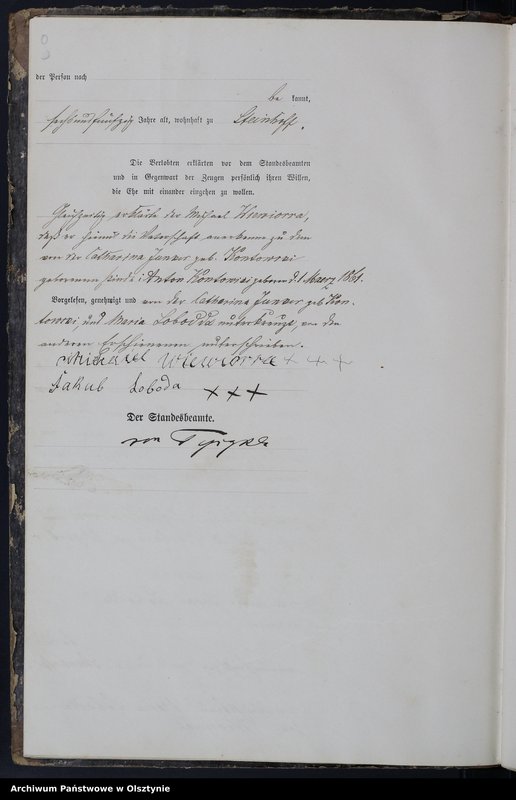 der Person nach
be kannt,
sechsundfünfzig Jahre alt, wohnhaft zu Steinhoff.
Die Verlobten erklärten vor dem Standesbeamten
und in Gegenwart der Zeugen persönlich ihren Willen,
die Ehe mit einander eingehen zu wollen.
Gleichzeitig erklärte der Michael Wiewiorra,
daß er hiermit die Vaterschaft anerkenne zu dem
von der Catharina geb. Kontowski
geborenen Kinde: Anton Kontowski geboren d. 1. Maerz 1861.
Vorgelesen, genehmigt und von der Catharina geb. Kon-
towski, und Maria Loboda unterkreuzt, von den
anderen Erschienenen unterschrieben.
Michael Wiewiorra + + +
Jakub Loboda + + +
Der Standesbeamte.
von
Archiwum Państwowe w Olsztynie